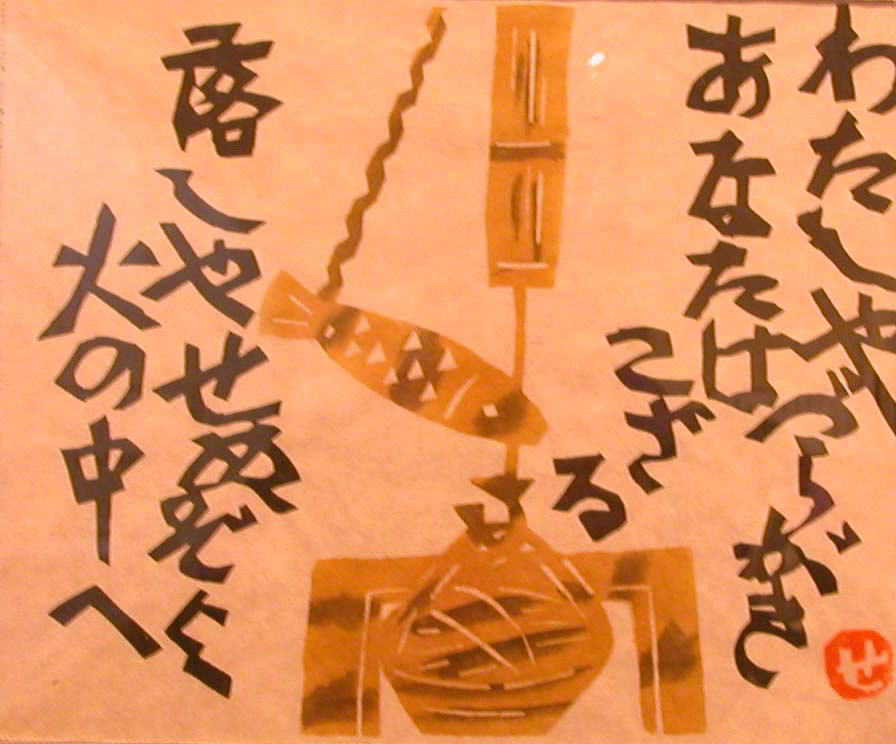 わたしやづらがき
あなたは
こざる
落しやせぬぞよ
火の中へ
せ